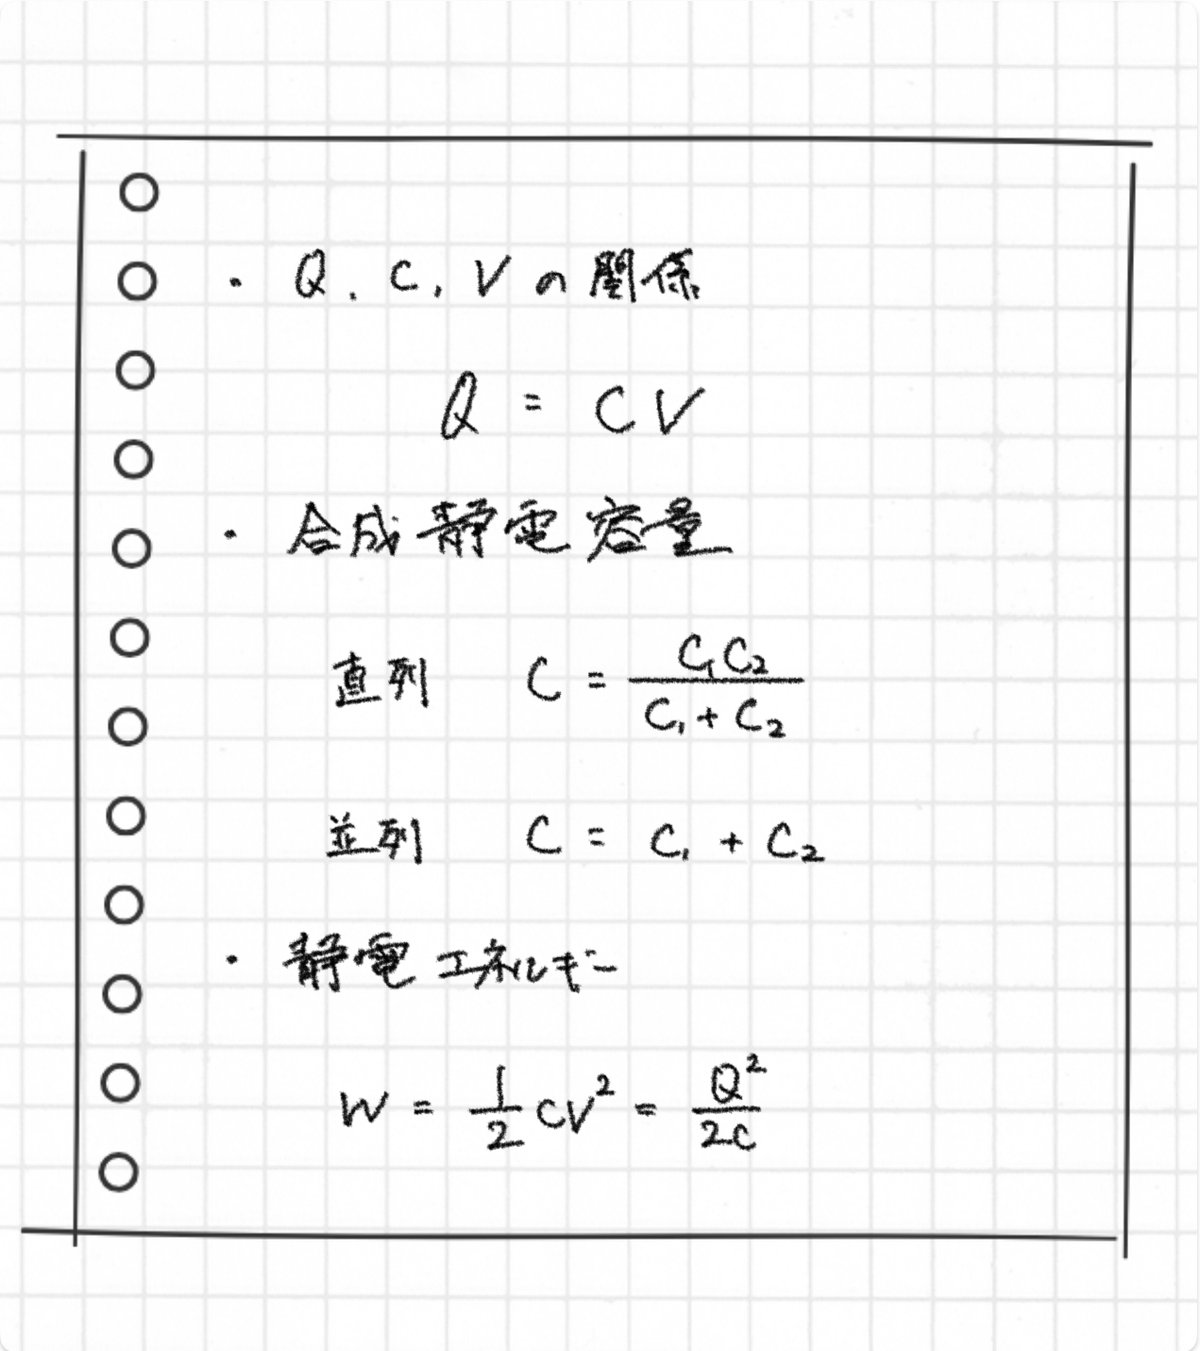 ・Q, C, Vの関係
Q = CV
・合成静電容量
直列 C = C₁C₂ / (C₁ + C₂)
並列 C = C₁ + C₂
・静電エネルギー
W = 1/2 CV² = Q² / 2C